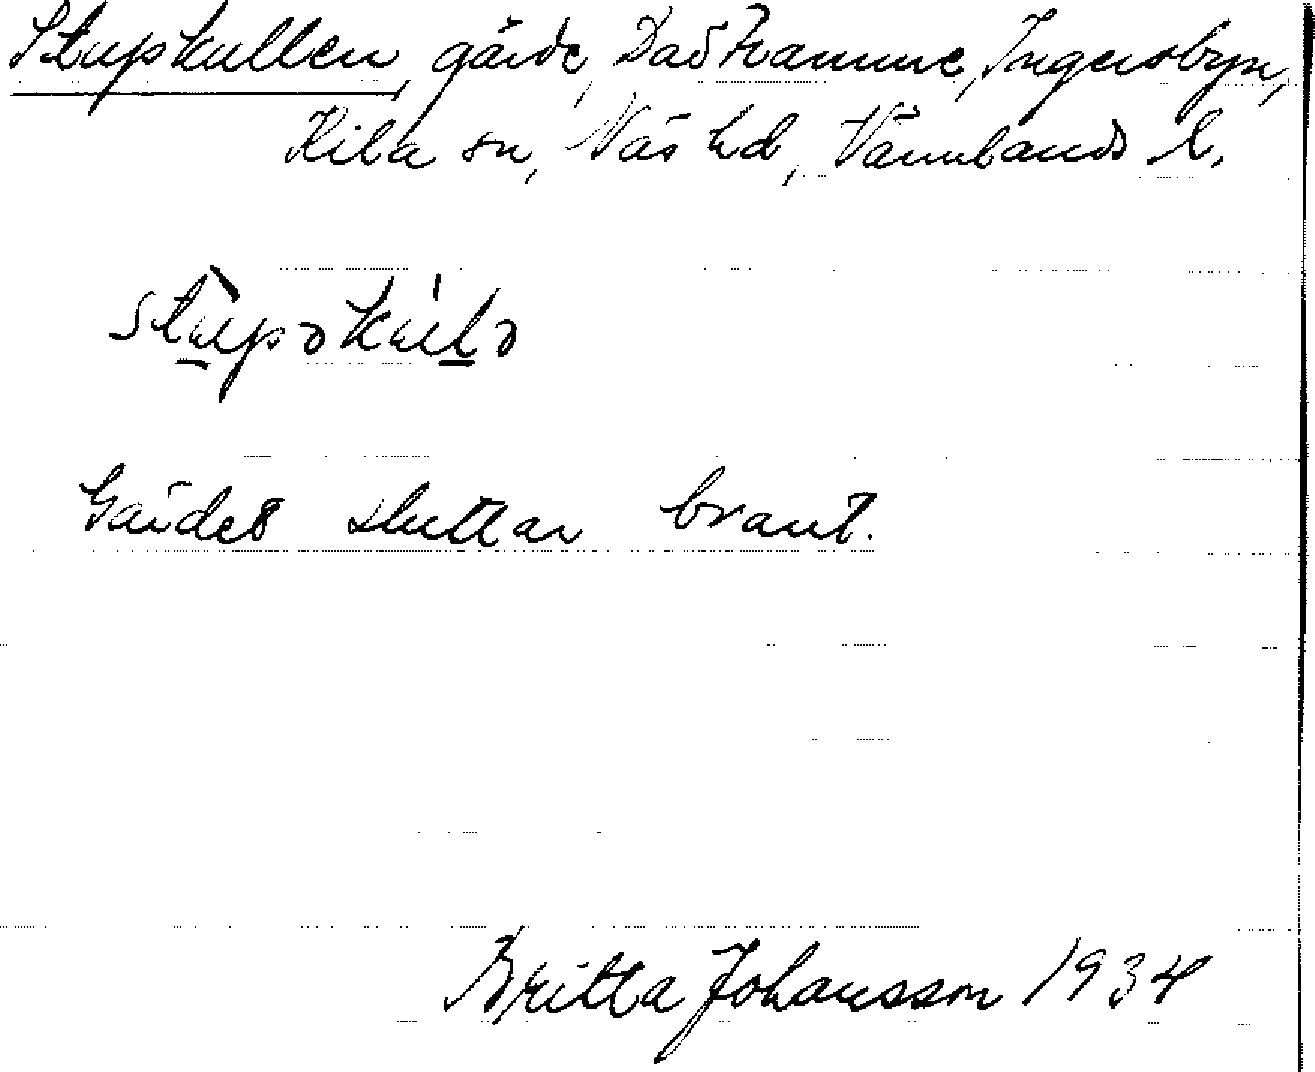 Stupkullen, gärde, Dadhamme, Ingersbyn,
Kila sn, Näs hd, Värmlands l.
Gärdet sluttar brant.
Britta Johansson 1934